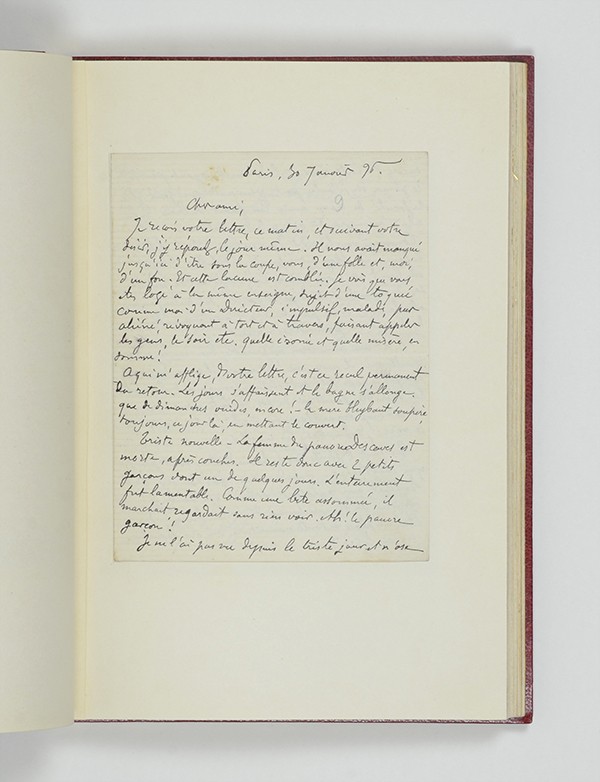 Paris, 30 Janvier 96.
9
Cher ami,
Je reçois votre lettre, ce matin, et suivant votre
désir, j'y réponds, le jour même. Il nous avait manqué
jusqu'ici d'être sous la coupe, vous, d'une folle et, moi,
d'un fou. Et cette lacune est comblée. Je vois que vous
êtes logé à la même enseigne, sujet d'une toquée
comme moi d'un directeur, impulsif, malade, peut
aliéné, révoquant à tort et à travers, faisant appeler
les gens, le soir etc. quelle ironie et quelle misère, en
somme!
A qui m'afflige, votre lettre, c'est ce recul permanent
du retour. Les jours s'affaissent et le bagne s'allonge.
que de dimanches vuides, encore! – la mère soupire,
toujours, ce jour là, en mettant le couvert.
Triste nouvelle – La femme du pauvre Descaves est
morte, après couches. Il reste donc avec 2 petits
garçons dont un de quelques jours. L'enterrement
fut lamentable. Comme une bête assommée, il
marchait regardait sans rien voir. Ah! le pauvre
garçon!
Je ne l'ai pas vu depuis le triste jour et n'ose